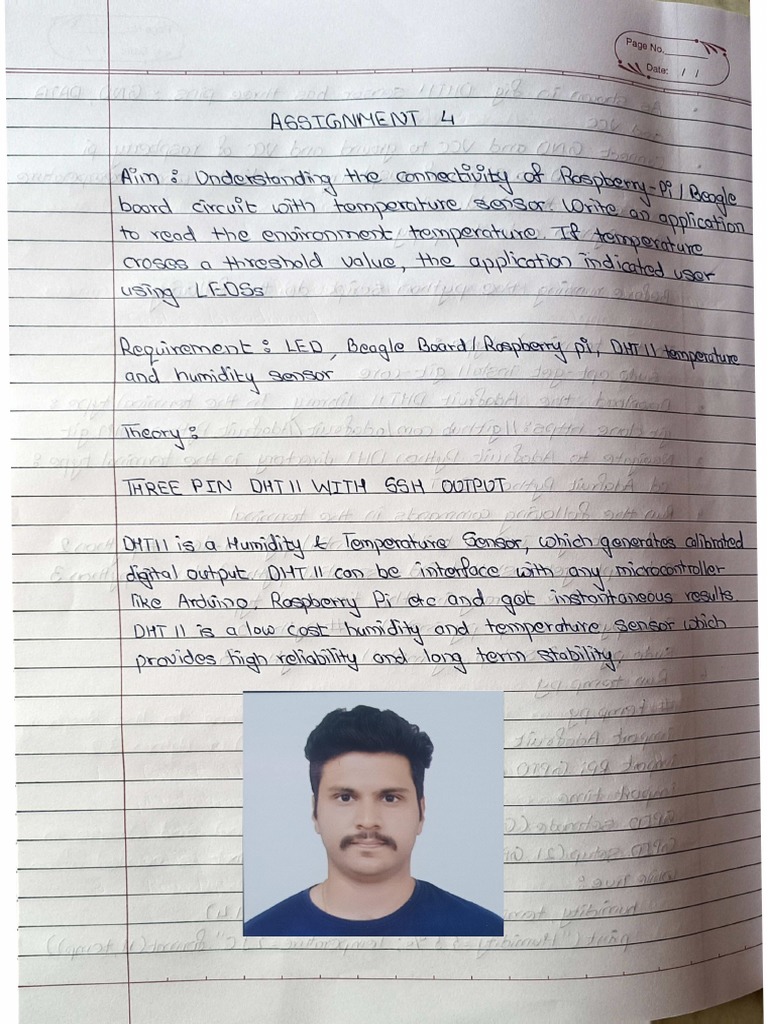 Page No.
Date: / /
ASSIGNMENT 4
Aim : Understanding the connectivity of Raspberry-Pi / Beagle
board circuit with temperature sensor. Write an application
to read the environment temperature. If temperature
croses a threshold value, the application indicated user
using LEDSs
Requirement : LED, Beagle Board / Raspberry pi, DHT11 temperature
and humidity sensor
Theory :
THREE PIN DHT11 WITH SSH OUTPUT
DHT11 is a Humidity & Temperature Sensor, which generates calibrated
digital output. DHT11 can be interface with any microcontroller
like Arduino, Raspberry Pi etc and get instantaneous results.
DHT11 is a low cost humidity and temperature sensor which
provides high reliability and long term stability.